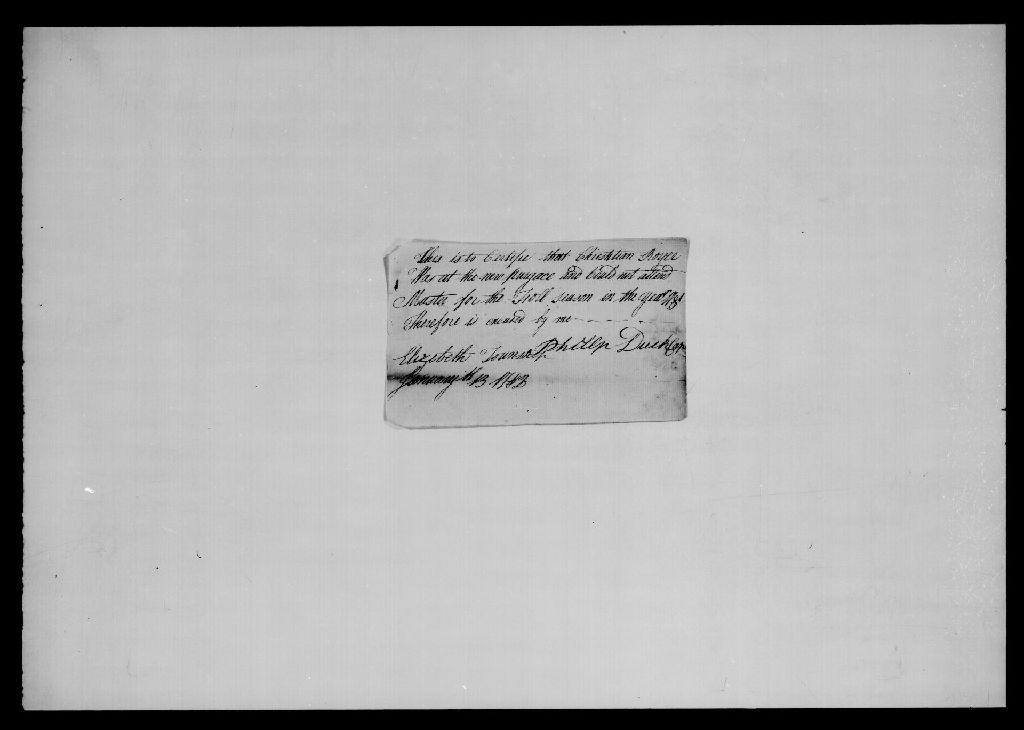 This is to Certifie that Christian Royer
Was at the new purgace and Could not attend
Muster for the Fall season in the year
Therefore is excused by me
Elizabeth Township Philip Duck Cap
January th 13 1783